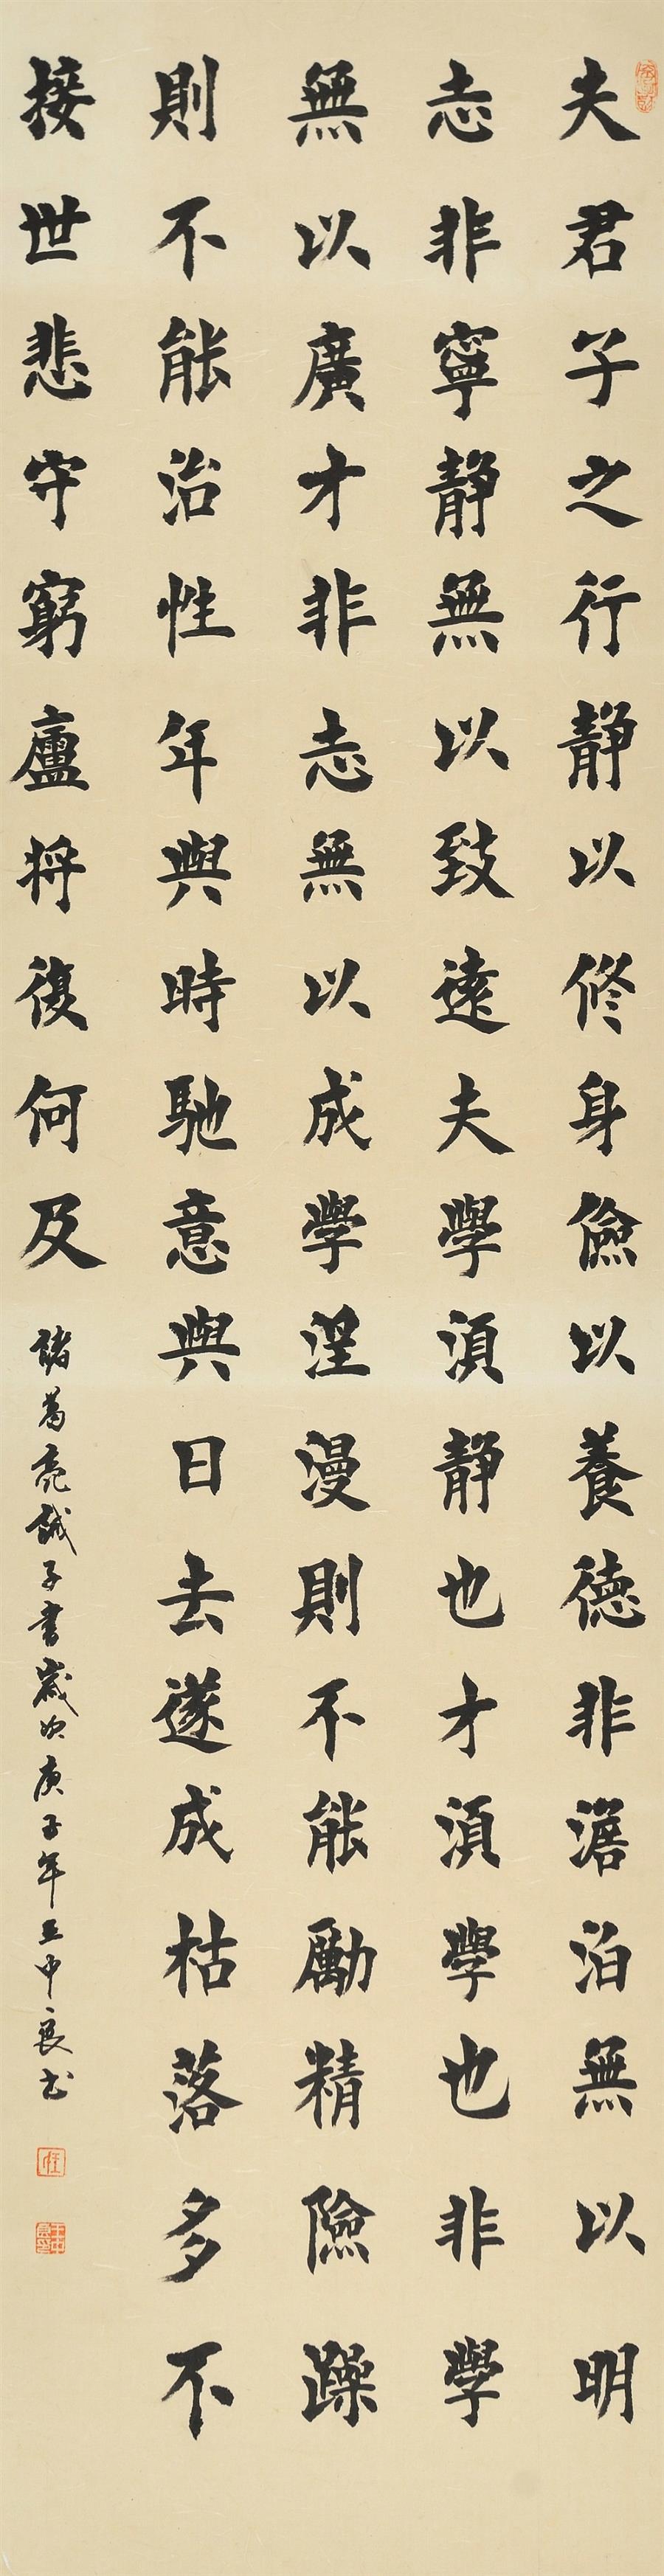 夫君子之行靜以修身儉以養德非澹泊無以明
志非寧靜無以致遠夫學須靜也才須學也非學
無以廣才非志無以成學淫漫則不能勵精險躁
則不能治性年與時馳意與日去遂成枯落多不
接世悲守窮廬將復何及
諸葛亮誡子書歲次庚子年王中良书